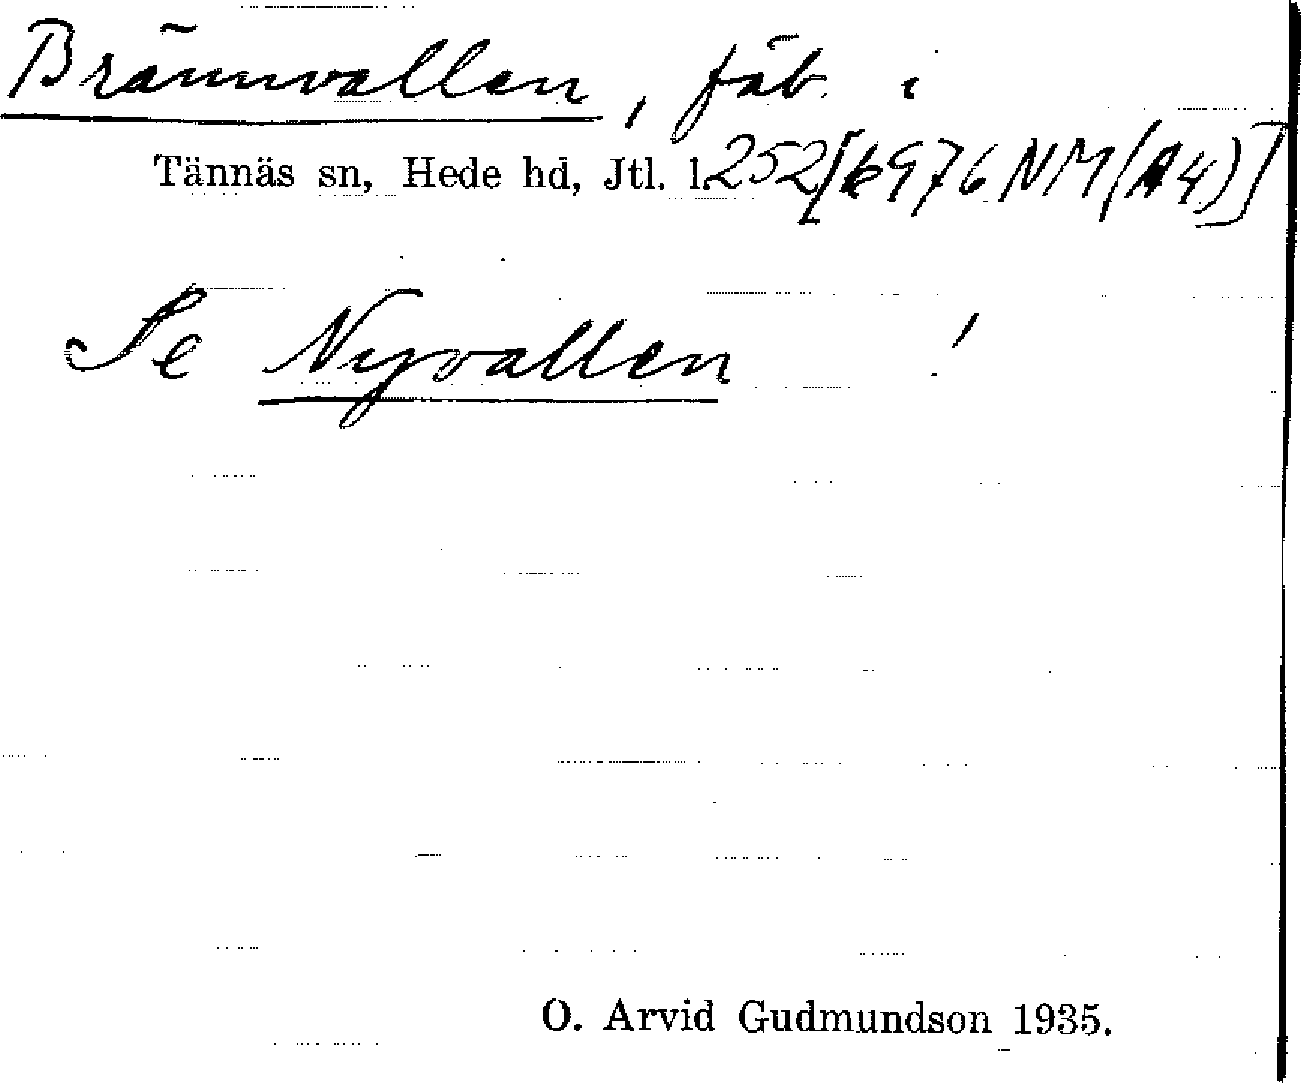 Brännvallen, fäb. i
Tännäs sn, Hede hd, Jtl. l. 252 [6976 NM (A4)]
Se Nyvallen !
O. Arvid Gudmundson 1935.